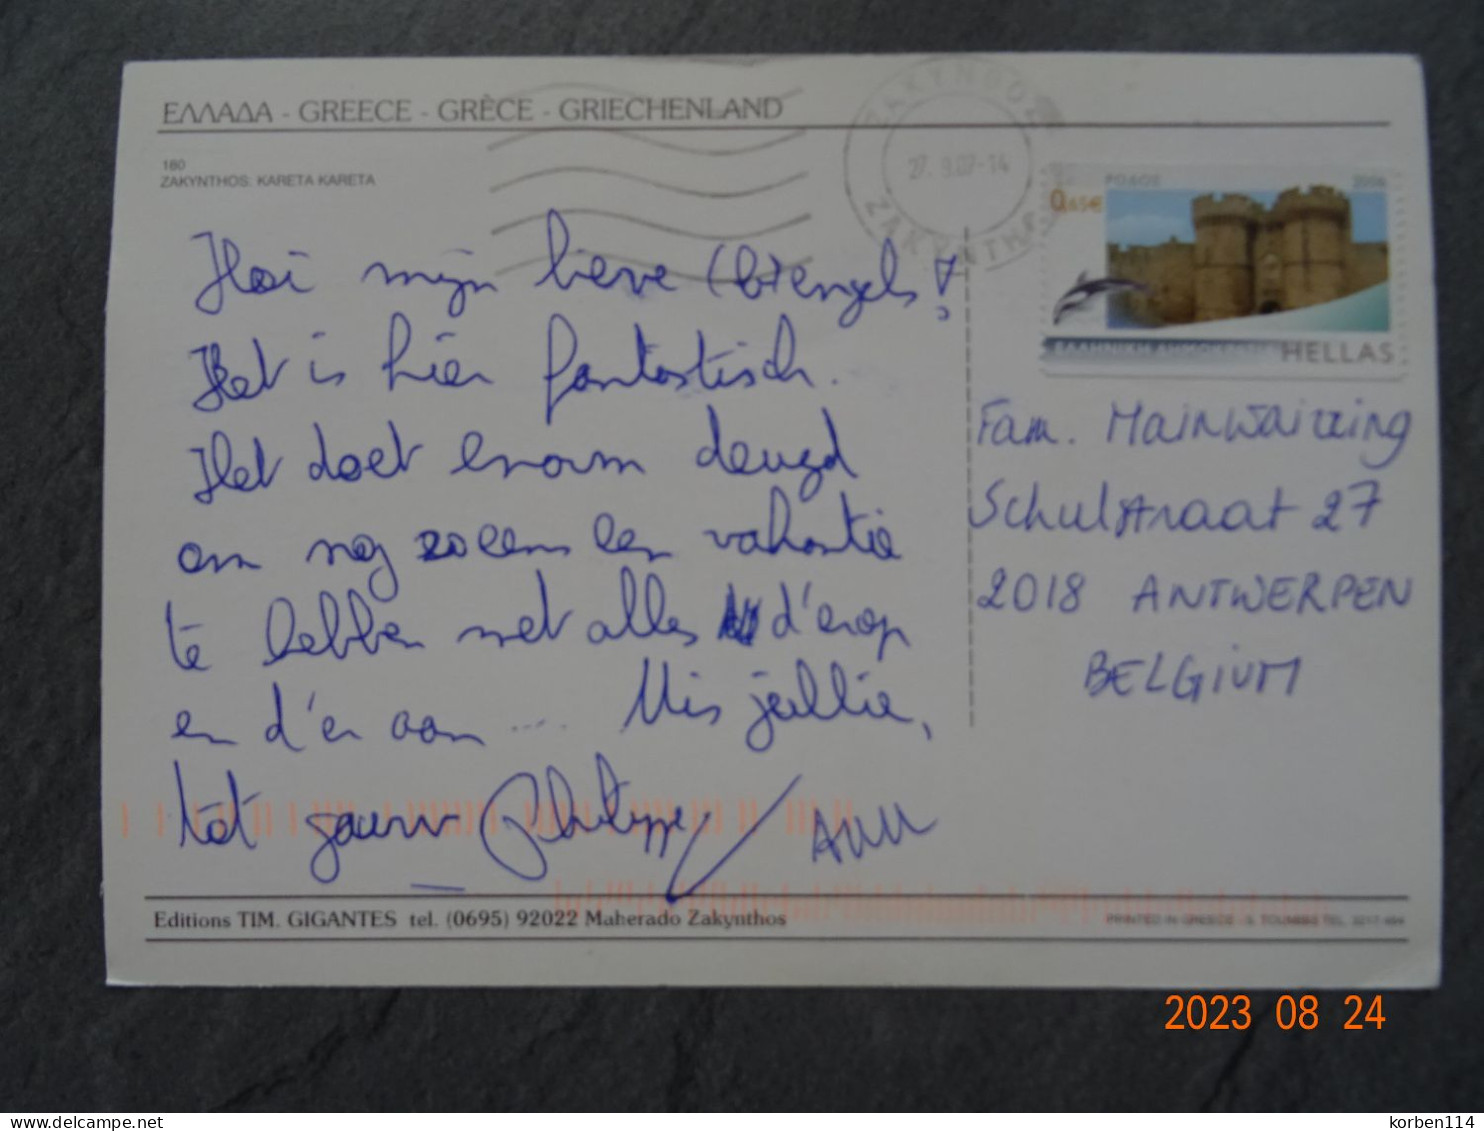 ΕΛΛΑΔΑ - GREECE - GRÈCE - GRIECHENLAND
180
ZAKYNTHOS: KARETA KARETA
ΖΑΚΥΝΘΟΣ
27. 9.07-14
ΡΟΔΟΣ 2006
0,65€
ΕΛΛΗΝΙΚΗ ΔΗΜΟΚΡΑΤΙΑ HELLAS
Hoi mijn lieve (b)engels!
Het is hier fantastisch.
Het doet enorm deugd
om nog zo eens een vakantie
te hebben met alles d'erop
en d'er aan .... Mis jullie,
tot gauw Philippe / Ann
Fam. Mainwairing
Schulstraat 27
2018 ANTWERPEN
BELGIUM
Editions TIM. GIGANTES tel. (0695) 92022 Maherado Zakynthos
PRINTED IN GREECE - S. TOUMBAS TEL.
2023 08 24
korben114